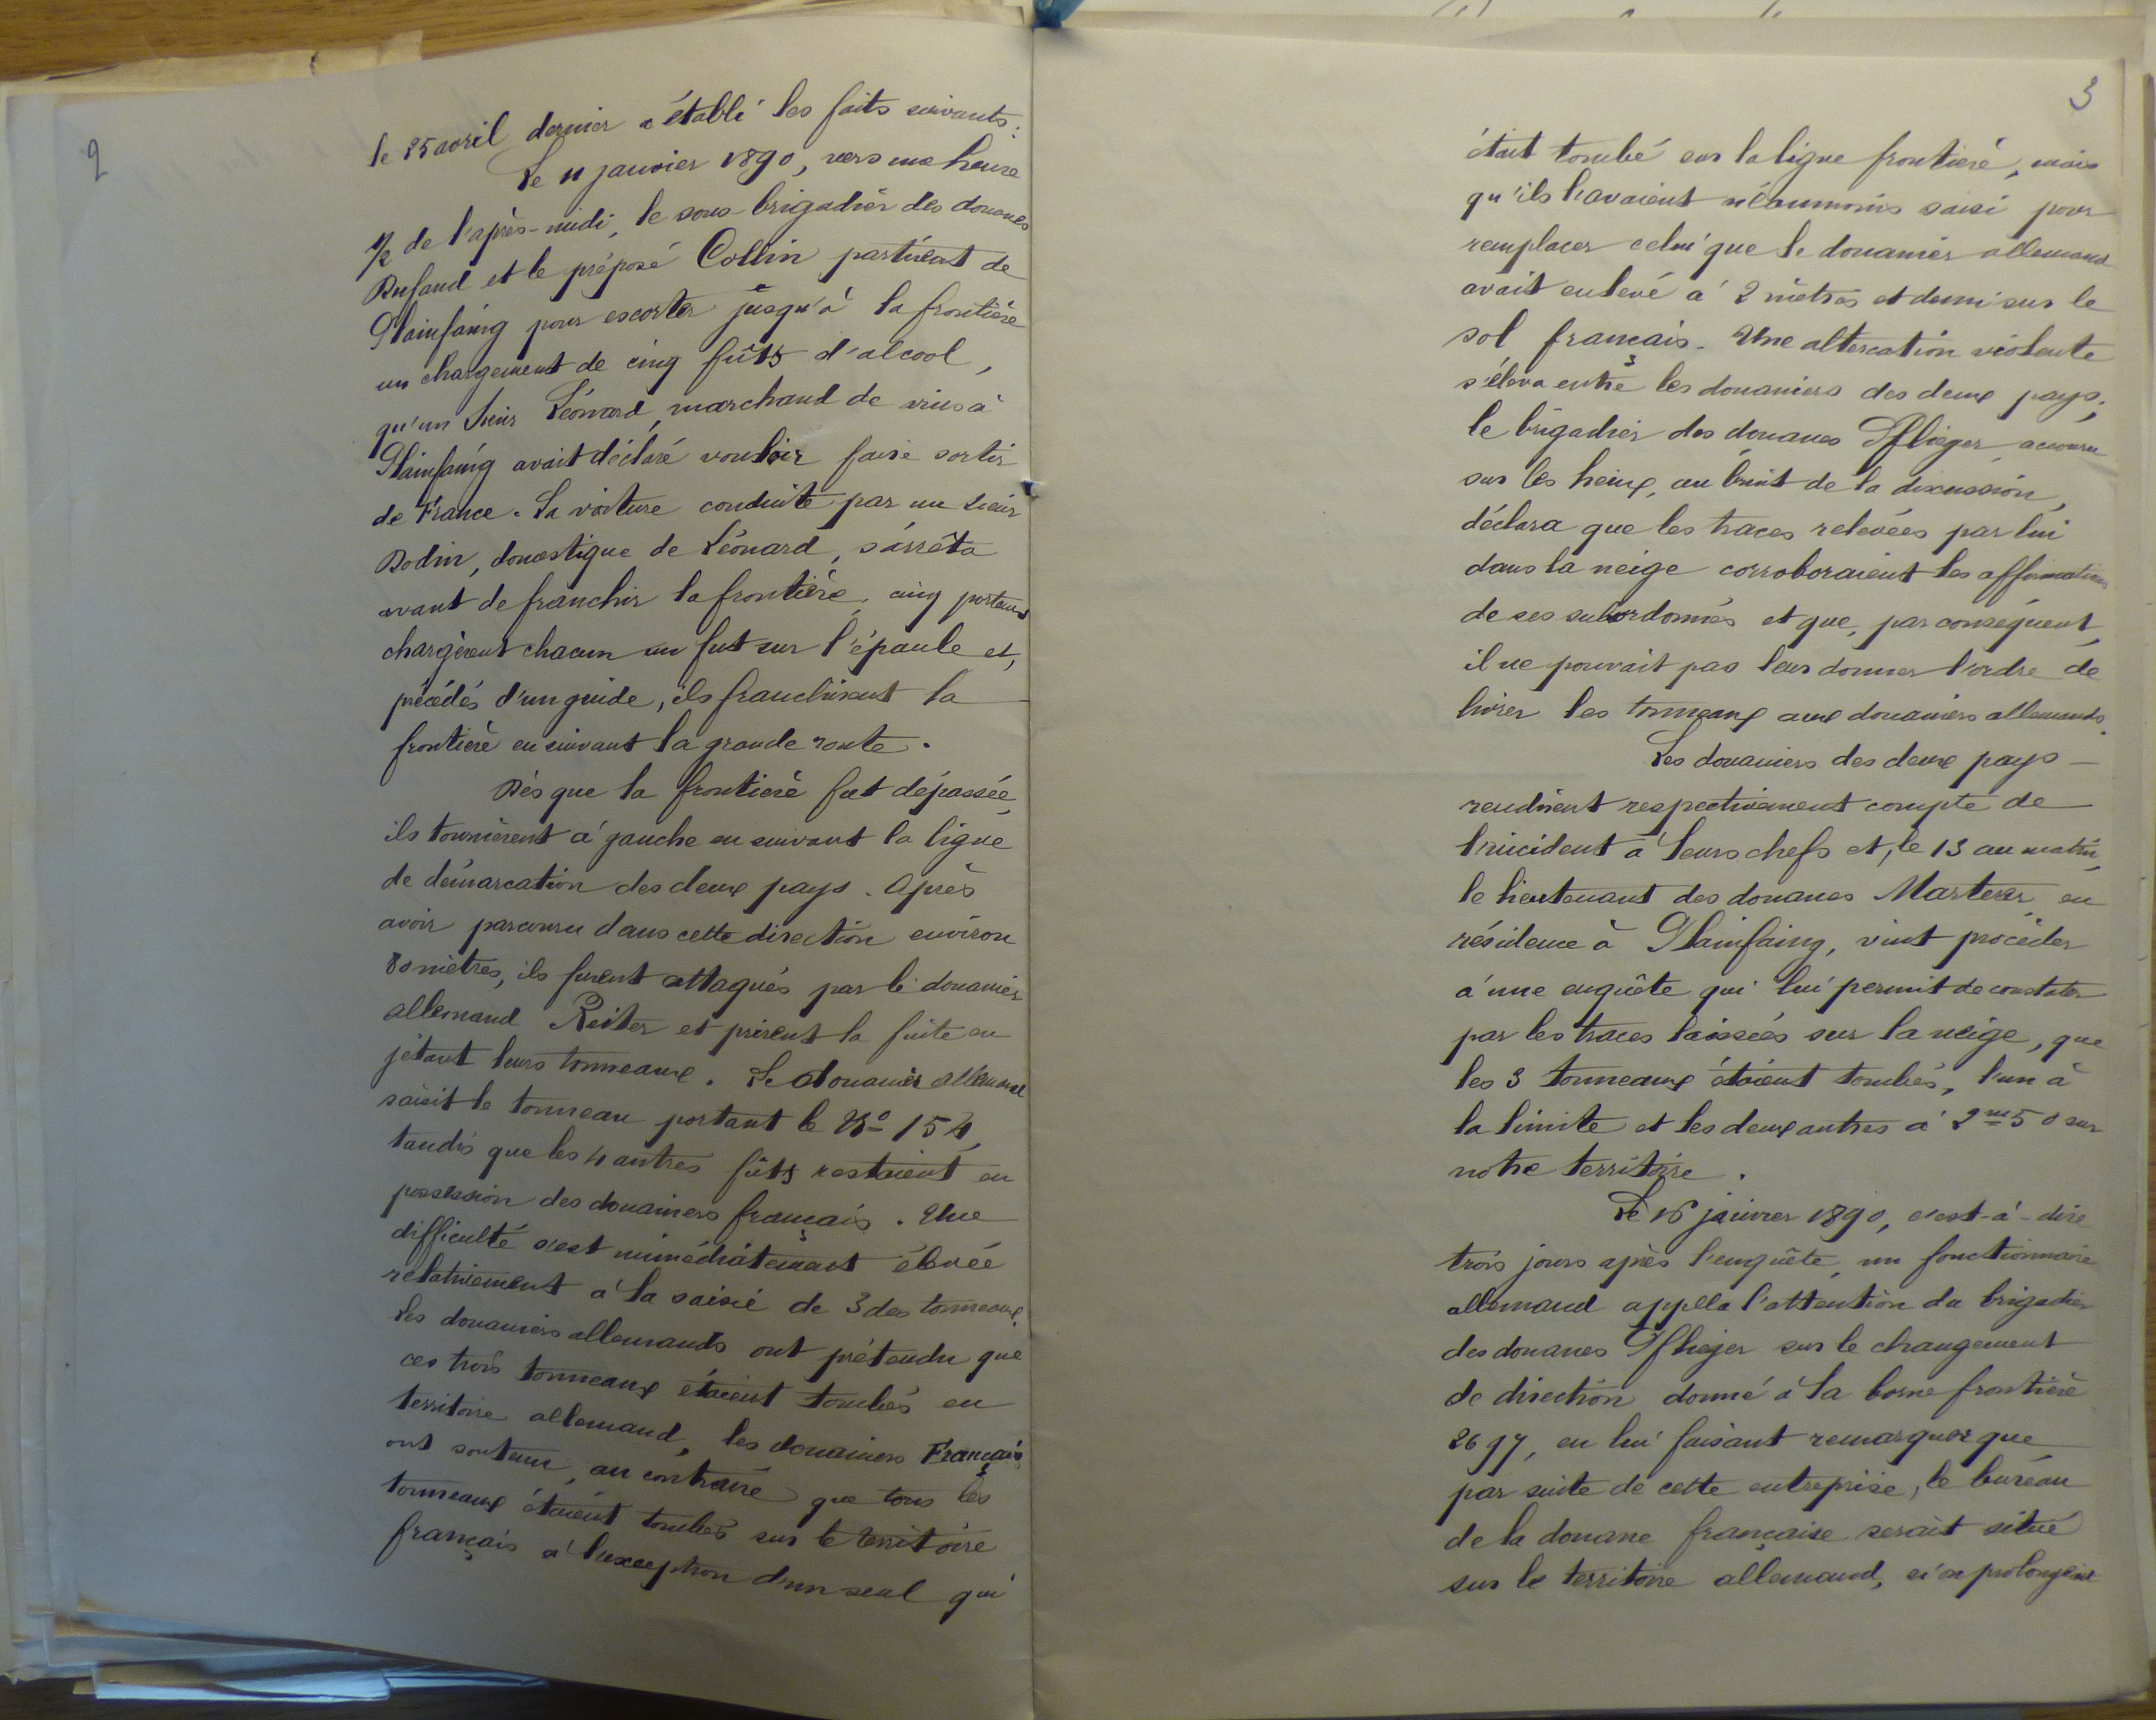 2
le 25 avril dernier a établi les faits suivants:
Le 11 janvier 1890, vers une heure
1/2 de l'après-midi, le sous-brigadier des douanes
Rufaud et le préposé Collin partirent de
Plainfaing pour escorter jusqu'à la frontière
un chargement de cinq fûts d'alcool,
qu'un sieur Léonard, marchand de vins à
Plainfaing avait déclaré vouloir faire sortir
de France. La voiture conduite par un sieur
Rodin, domestique de Léonard, s'arrêta
avant de franchir la frontière, cinq porteurs
chargèrent chacun un fut sur l'épaule et,
précédés d'un guide, ils franchirent la
frontière en suivant la grande route.
Dès que la frontière fut dépassée,
ils tournèrent à gauche en suivant la ligne
de démarcation des deux pays. Après
avoir parcouru dans cette direction environ
80 mètres, ils furent attaqués par le douanier
allemand Reiter et prirent la fuite en
jetant leurs tonneaux. Le douanier allemand
saisit le tonneau portant le No 154,
tandis que les 4 autres fûts restaient en
possession des douaniers français. Une
difficulté s'est immédiatement élevée
relativement à la saisie de 3 des tonneaux.
Les douaniers allemands ont prétendu que
ces trois tonneaux étaient tombés en
territoire allemand, les douaniers Français
ont soutenu, au contraire que tous les
tonneaux étaient tombés sur le territoire
français à l'exception d'un seul qui
3
était tombé sur la ligne frontière, mais
qu'ils l'avaient néanmoins saisi pour
remplacer celui que le douanier allemand
avait enlevé à 2 mètres et demi sur le
sol français. Une altercation violente
s'éleva entre les douaniers des deux pays;
le brigadier des douanes Pflieger accouru
sur les lieux, au bruit de la discussion,
déclara que les traces relevées par lui
dans la neige corroboraient les affirmations
de ses subordonnés et que, par conséquent,
il ne pouvait pas leur donner l'ordre de
livrer les tonneaux aux douaniers allemands.
Les douaniers des deux pays
rendirent respectivement compte de
l'incident à leurs chefs et, le 13 au matin,
le lieutenant des douanes Marterer en
résidence à Plainfaing, vint procéder
à une enquête qui lui permit de constater
par les traces laissées sur la neige, que
les 3 tonneaux étaient tombés, l'un à
la limite et les deux autres à 2m50 sur
notre territoire.
Le 16 janvier 1890, c'est-à-dire
trois jours après l'enquête, un fonctionnaire
allemand appella l'attention du brigadier
des douanes Pflieger sur le changement
de direction donné à la borne frontière
2697, en lui faisant remarquer que
par suite de cette entreprise, le bureau
de la douane française serait situé
sur le territoire allemand, si on prolongeait